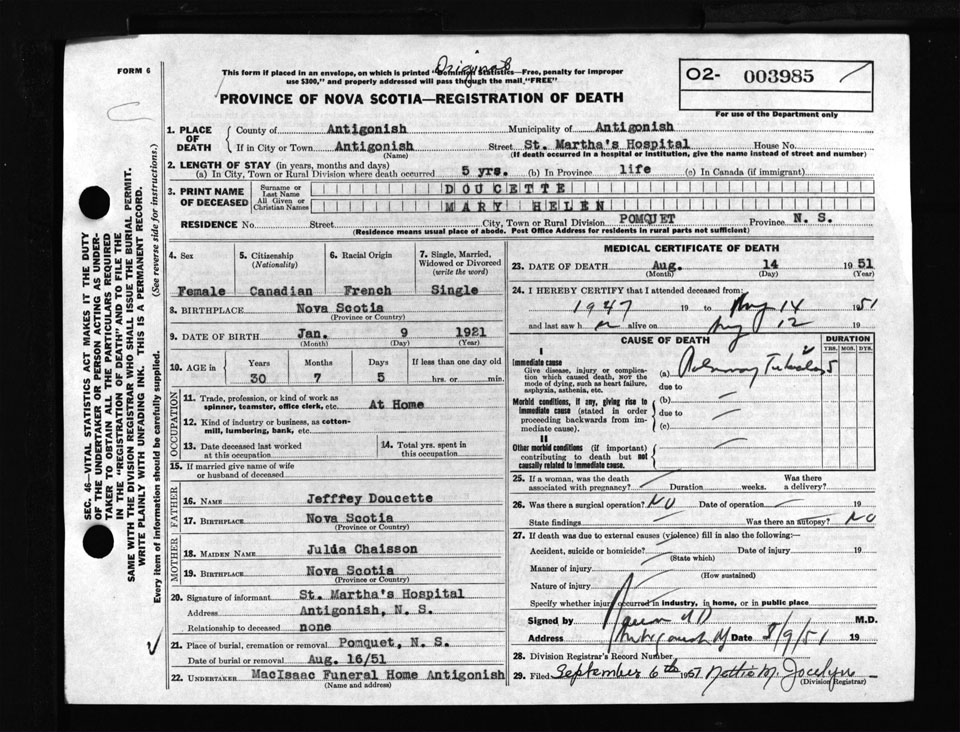 FORM 6
Original
This form if placed in an envelope, on which is printed "Dominion Statistics—Free, penalty for improper
use $300," and properly addressed will pass through the mail "FREE"
PROVINCE OF NOVA SCOTIA—REGISTRATION OF DEATH
O2- 003985
For use of the Department only
1. PLACE OF DEATH County of Antigonish Municipality of Antigonish
If in City or Town Antigonish Street St. Martha's Hospital House No.
(Name) (If death occurred in a hospital or institution, give the name instead of street and number)
2. LENGTH OF STAY (in years, months and days)
(a) In City, Town or Rural Division where death occurred 5 yrs. (b) In Province life (c) In Canada (if immigrant)
3. PRINT NAME OF DECEASED Surname or Last Name DOUCETTE
All Given or Christian Names MARY HELEN
RESIDENCE No. Street City, Town or Rural Division POMQUET Province N. S.
(Residence means usual place of abode. Post Office Address for residents in rural parts not sufficient)
4. Sex 5. Citizenship (Nationality) 6. Racial Origin 7. Single, Married, Widowed or Divorced (write the word)
Female Canadian French Single
8. BIRTHPLACE Nova Scotia
(Province or Country)
9. DATE OF BIRTH Jan. 9 1921
(Month) (Day) (Year)
10. AGE in Years Months Days If less than one day old
30 7 5 hrs. or min.
OCCUPATION
11. Trade, profession, or kind of work as
spinner, teamster, office clerk, etc. At Home
12. Kind of industry or business, as cotton-
mill, lumbering, bank, etc.
13. Date deceased last worked at this occupation 14. Total yrs. spent in this occupation
15. If married give name of wife
or husband of deceased
FATHER
16. NAME Jeffrey Doucette
17. BIRTHPLACE Nova Scotia
(Province or Country)
MOTHER
18. MAIDEN NAME Julia Chaisson
19. BIRTHPLACE Nova Scotia
(Province or Country)
20. Signature of informant St. Martha's Hospital
Address Antigonish, N. S.
Relationship to deceased none
21. Place of burial, cremation or removal Pomquet, N. S.
Date of burial or removal Aug. 16/51
22. UNDERTAKER MacIsaac Funeral Home Antigonish
(Name and address)
MEDICAL CERTIFICATE OF DEATH
23. DATE OF DEATH Aug. 14 1951
(Month) (Day) (Year)
24. I HEREBY CERTIFY that I attended deceased from:
1947 19 to Aug 14 1951
and last saw h er alive on Aug 12 19
CAUSE OF DEATH DURATION
YRS. MOS. DYS.
I
Immediate cause (a) Pulmonary Tuberculosis 5
Give disease, injury or complica-
tion which caused death, not the
mode of dying, such as heart failure,
asphyxia, asthenia, etc.
due to
Morbid conditions, if any, giving rise to
immediate cause (stated in order
proceeding backwards from im-
mediate cause).
(b)
due to
(c)
II
Other morbid conditions (if important)
contributing to death but not
causally related to immediate cause.
25. If a woman, was the death Was there
associated with pregnancy? Duration weeks. a delivery?
26. Was there a surgical operation? NO Date of operation 19
State findings Was there an autopsy? NO
27. If death was due to external causes (violence) fill in also the following:—
Accident, suicide or homicide? Date of injury 19
(State which)
Manner of injury
(How sustained)
Nature of injury
Specify whether injury occurred in industry, in home, or in public place
Signed by M.D.
Address Date 8/9/51 19
28. Division Registrar's Record Number
29. Filed September 6th 1951 Nettie M. Jocelyn
(Division Registrar)
SEC. 46—VITAL STATISTICS ACT MAKES IT THE DUTY
OF THE UNDERTAKER OR PERSON ACTING AS UNDER-
TAKER TO OBTAIN ALL THE PARTICULARS REQUIRED
IN THE "REGISTRATION OF DEATH" AND TO FILE THE
SAME WITH THE DIVISION REGISTRAR WHO SHALL ISSUE THE BURIAL PERMIT.
WRITE PLAINLY WITH UNFADING INK. THIS IS A PERMANENT RECORD.
Every item of information should be carefully supplied. (See reverse side for instructions.)